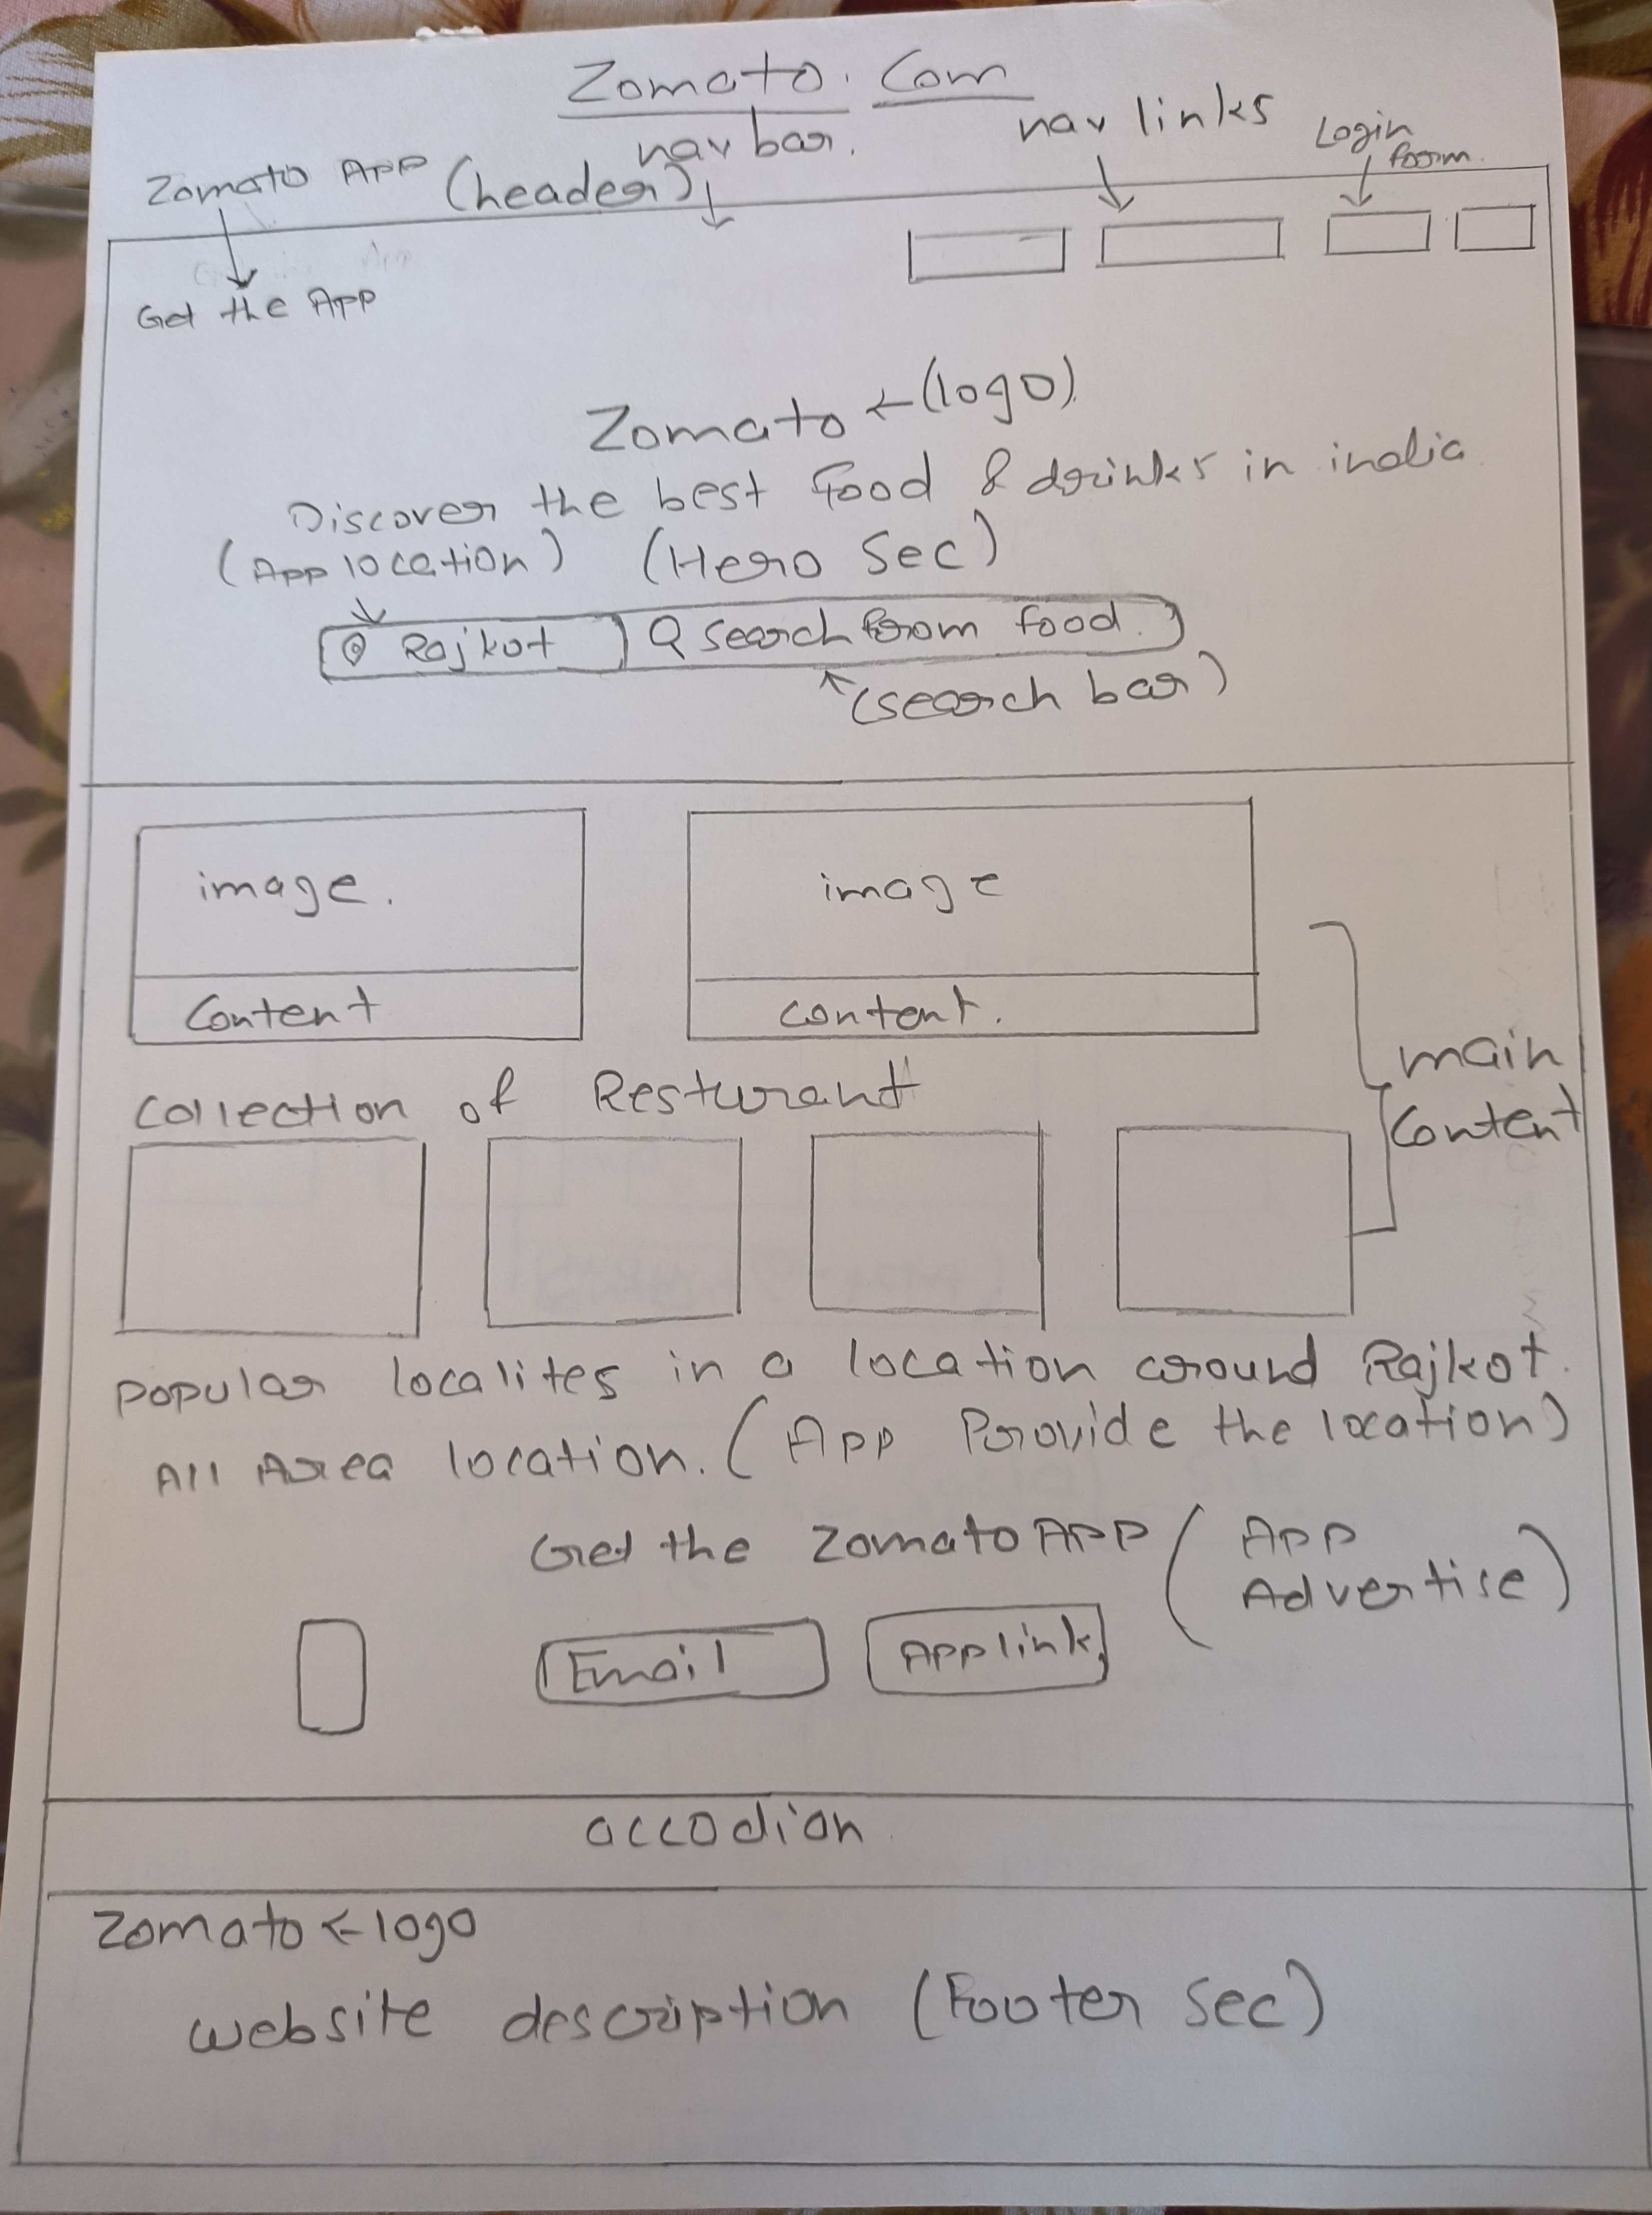 Zomato. Com
nav bar.
nav links
Login form.
Zomato App
(header)
Get the App
Zomato ← (logo).
Discover the best food & drinks in india
(App location) (Hero Sec)
Rajkot
Search from food.
(search bar)
image.
image
Content
content.
main
Content
Collection of Resturant
Popular localites in a location around Rajkot.
All Area location. (App Provide the location)
Get the Zomato App (App Advertise)
Email
App link
accodian
Zomato ← logo
website description (Footer Sec)